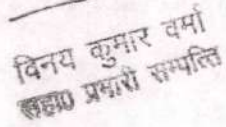 विनय कुमार वर्मा
सहा0 प्रभारी सम्पत्ति